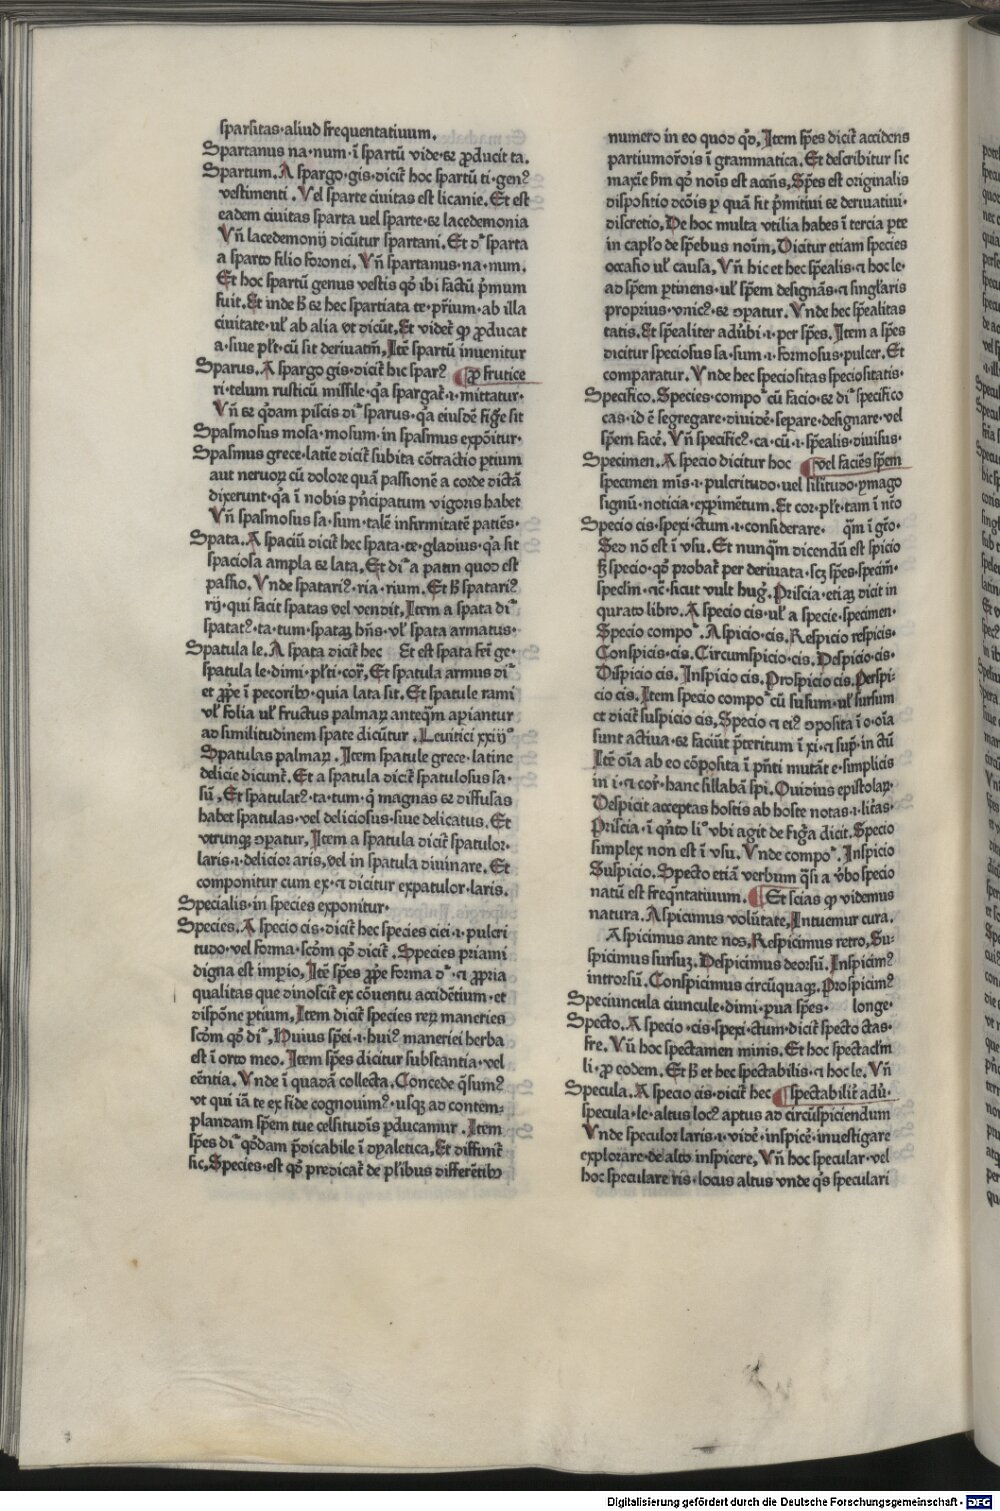 sparsitas·aliud frequentatiuum.
Spartanus na·num·ī spartū vide·⁊ ꝓducit ta.
Spartum. A spargo·gis·dicit̄ hoc spartū ti·genꝰ
vestimenti. Vel sparte ciuitas est licanie. Et est
eadem ciuitas sparta uel sparte·⁊ lacedemonia
Vn̄ lacedemonij dicūtur spartani. Et dr̄ sparta
a sparto filio foronei. Vn̄ spartanus·na·num.
Et hoc spartū genus vestis qd̓ ibi factū p̄mum
fuit. Et inde h̄ ⁊ hec spartiata te·pr̄ium·ab illa
ciuitate·ul̓ ab alia vt dicūt. Et videt̄ ꝙ ꝓducat
a·siue pl̓t·cū sit deriuatm̄. Itē spartū inuenitur
Sparus. A spargo gis·dicit̄ hic sparꝰ ¶ ꝓ frutice
ri·telum rusticū missile·qͣa spargat̄·i·mittatur·
Vn̄ ⁊ qͥdam piscis dr̄ sparus·qͣa eiusdē figͬe sit
Spasmosus mosa·mosum·in spasmus expōitur·
Spasmus grece·latīe dicit̄ subita cōtractio ꝑtium
aut neruoꝝ cū dolore quā passionē a corde dictā
dixerunt·qͣa ī nobis pͥncipatum vigoris habet
Vn̄ spasmosus sa·sum·talē infirmitatē patiēs·
Spata. A spaciū dicit̄ hec spata·te·gladius·qͣa sit
spaciosa ampla ⁊ lata. Et dr̄ a patin quod est
passio. Vnde spatariꝰ·ria·rium. Et h̄ spatariꝰ
rij·qui facit spatas vel vendit. Item a spata dr̄
spatatꝰ·ta·tum·spataꝫ hn̄s·ul̓ spata armatus·
Spatula le. A spata dicit̄ hec Et est spata fem̄ ge·
spatula le·dimi·pl̓ti·cor̄. Et spatula armus dr̄
et ꝓpͥe ī pecoribꝫ·quia lata sit. Et spatule rami
ul̓ folia ul̓ fructus palmaꝝ anteqͣm apiantur
ad similitudinem spate dicūtur. Leuitici xxiijͦ
Spatulas palmaꝝ. Item spatule grece·latine
delicie dicunt̄. Et a spatula dicit̄ spatulosus sa·
sū. Et spatulatꝰ·ta·tum·qͥ magnas ⁊ diffusas
habet spatulas·vel deliciosus·siue delicatus. Et
vtrunqꝫ ꝯpatur. Item a spatula dicit̄ spatulor·
laris·i·delicior aris, vel in spatula diuinare. Et
componitur cum ex·⁊ dicitur expatulor·laris.
Specialis·in species exponitur·
Species. A specio cis·dicit̄ hec species ciei·i·pulcri
tudo·vel forma·scd̓m qd̓ dicit̄. Species priami
digna est imꝑio. Itē sp̄es ꝓpͥe forma dr̄·⁊ ꝓpria
qualitas que dinoscit̄ ex cōuentu accidētium·et
dispōne ꝑtium. Item dicit̄ species reꝝ maneries
scd̓m qd̓ dr̄. Huius sp̄ei·i·huiꝰ maneriei herba
est ī orto meo. Item sp̄es dicitur substantia·vel
eēntia. Vnde ī quadā collecta. Concede qͥsumꝰ
vt qui iā te ex fide cognouimꝰ·usqꝫ ad contem⹀
plandam sp̄em tue celsitudīs ꝑducamur. Item
sp̄es dr̄ qͦddam p̄dicabile ī dyaletica. Et diffinit̄
sic. Species·est qd̓ predicat̄ de pl̓ibus differētibꝫ
numero in eo quod qͥd. Item sp̄es dicit̄ accidens
partiumor̄ois ī grammatica. Et describitur sic
maxīe h̓m qd̓ nois est accn̄s. Sp̄es est originalis
dispositio dcōis ꝑ quā fit p̄mitiui ⁊ deriuatiui·
discretio. De hoc multa vtilia habes ī tercia ꝑte
in capl̓o de sp̄ebus noīm. Dicitur etiam species
occasio ul̓ causa. Vn̄ hic et hec sp̄ealis·⁊ hoc le·
ad sp̄em ꝑtinens·ul̓ sp̄em designās·⁊ singl̓aris
proprius·vnicꝰ·⁊ ꝯpatur. Vnde hec sp̄ealitas
tatis. Et sp̄ealiter adūbi·i·per sp̄es. Item a sp̄es
dicitur speciosus sa·sum·i·formosus·pulcer. Et
comparatur. Vnde hec speciositas speciositatis·
Specifico. Species·compor̄ cū facio·⁊ dr̄ specifico
cas·id ē segregare·diuidē·separe·designare·vel
sp̄em facē. Vn̄ specificꝰ·ca·cū·i·sp̄ealis·diuisus·
Specimen. A specio dicitur hoc ¶ vel faciēs sp̄em
specimen mīs·i·pulcritudo·uel silitudo·ymago
signū·noticia·exꝑimētum. Et cor·pl̓t·tam ī nt̓o
Specio cis·spexi·ctum·i·considerare. qͣm ī gt̓o·
Sed nō est ī vsu. Et nunqͣm dicendū est spicio
s̄ specio·qd̓ probat̄ per deriuata·scꝫ sp̄es·specīm·
speclm̄·⁊c̄·sicut vult hug̓. Priscia·etiaꝫ dicit in
qurato libro. A specio cis·ul̓ a specie·specimen·
Specio compor̄. Aspicio·cis. Respicio respicis·
Conspicis·cis. Circumspicio·cis. Despicio·cis·
Dispicio cis. Inspicio cis. Prospicio cis. Perspi⹀
cio cis. Item specio compor̄ cū susum·ul̓ sursum
et dicit̄ suspicio cis. Specio ⁊ eiꝰ ꝯposita ī o·oīa
sunt actiua·⁊ faciūt p̄teritum ī xi·⁊ sup̄·in ctū
Itē oīa ab eo cōposita ī pn̄ti mutāt e·simplicis
in i·⁊ cor̄·hanc sillabā spi. Ouidius epistolaꝝ·
Despicit acceptas hostis ab hoste notas·i·lit̄as·
Priscia·ī qͥnto lio vbi agit de figͬa dicit. Specio
simplex non est ī vsu. Vnde compor̄. Inspicio
Suspicio. Specto etiā verbum qͣsi a v̓bo specio
natū est freqn̄tatiuum. ¶ Et scias ꝙ videmus
natura. Aspicimus volūtate, Intuemur cura.
Aspicimus ante nos, Respicimus retro, Su⹀
spicimus sursuꝫ. Despicimus deorsū. Inspicimꝰ
introrsū. Conspicimus circūquaqꝫ. Prospicimꝰ
Speciuncula ciuncule·dimi·ꝑua sp̄es· longe·
Specto. A specio·cis·spexi·ctum·dicit̄ specto ctas·
fre. Vn̄ hoc spectamen minis. Et hoc spectacl̓m
li·ꝓ eodem. Et h̄ et hec spectabilis·⁊ hoc le. Vn̄
Specula. A specio cis·dicit̄ hec ¶ spectabilit̓ adū·
specula·le·altus locꝰ aptus ad circūspiciendum
Vnde speculor laris·i·vidē·inspicē·inuestigare
explorare·de alto inspicere. Vn̄ hoc specular·vel
hoc speculare ris·locus altus vnde qͥs speculari
Digitalisierung gefördert durch die Deutsche Forschungsgemeinschaft · DFG